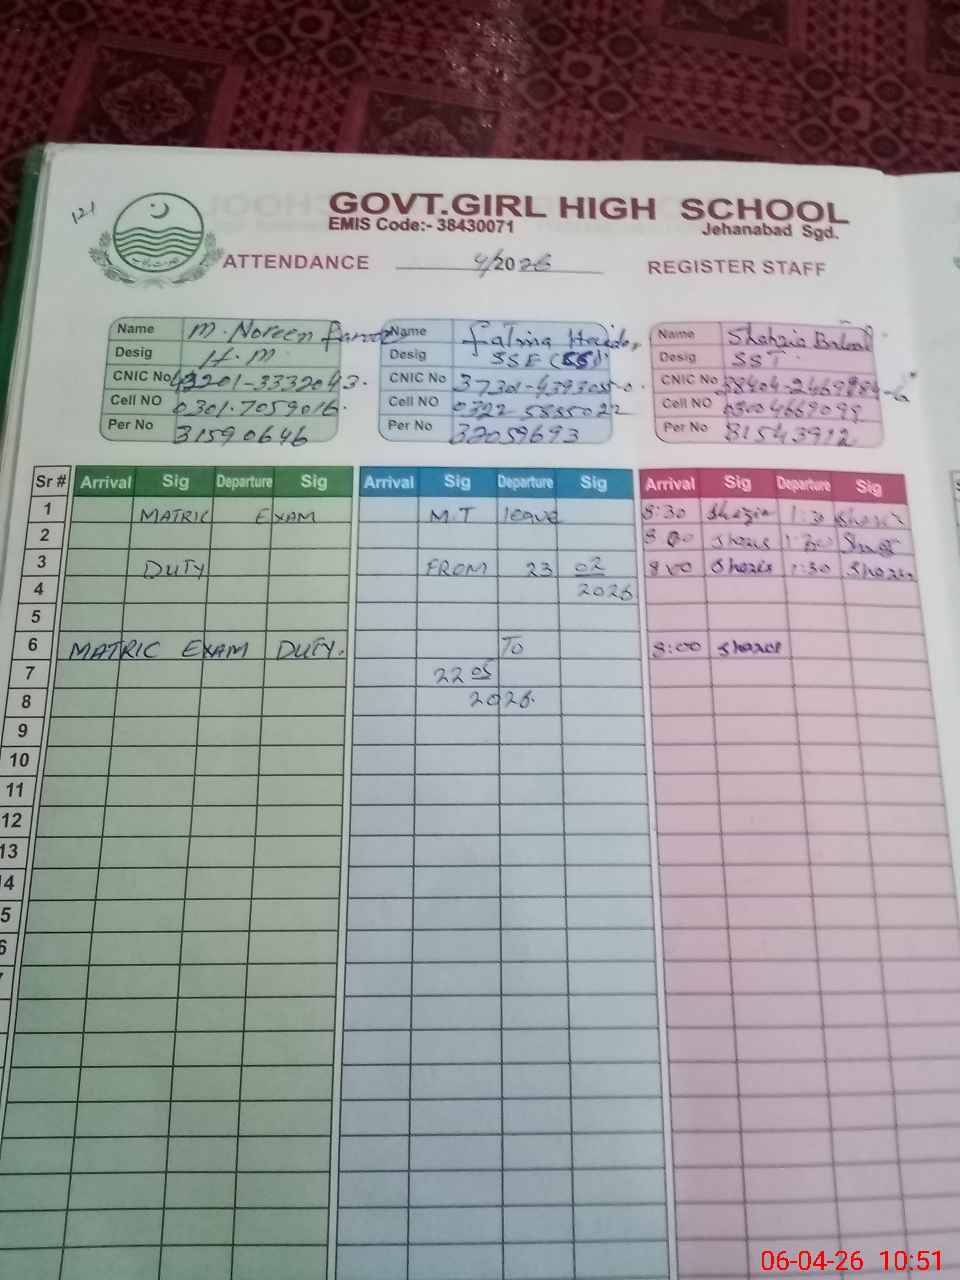 121
GOVT.GIRL HIGH SCHOOL
EMIS Code:- 38430071
Jehanabad Sgd.
ATTENDANCE 4/2026 REGISTER STAFF
Name M. Noreen
Desig H.M
CNIC No
Cell NO 0301.7059016.
Per No 31590646
Name Fatima
Desig SSE (SS)
CNIC No 37301-4393055-0
Cell NO 0322 5855022
Per No 32059693
Name Shahzia
Desig SST
CNIC No
Cell NO 03004669098
Per No 31543912
Sr # Arrival Sig Departure Sig Arrival Sig Departure Sig Arrival Sig Departure Sig
1 MATRIC EXAM M.T leave 8:30 1:30
2 8:00 1:30
3 DUTY FROM 23 02 8:00 1:30
4 2026
5
6 MATRIC EXAM DUTY. To 8:00
7 22 05
8 2026.
9
10
11
12
13
14
5
6
7
06-04-26 10:51